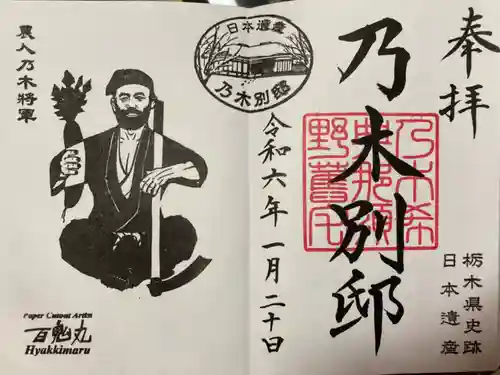 奉拝
乃木別邸
乃木希
典那須
野舊宅
栃木県史跡
日本遺産
日本遺産
乃木別邸
令和六年一月二十日
農人乃木將軍
Paper Cutout Artist
百鬼丸
Hyakkimaru